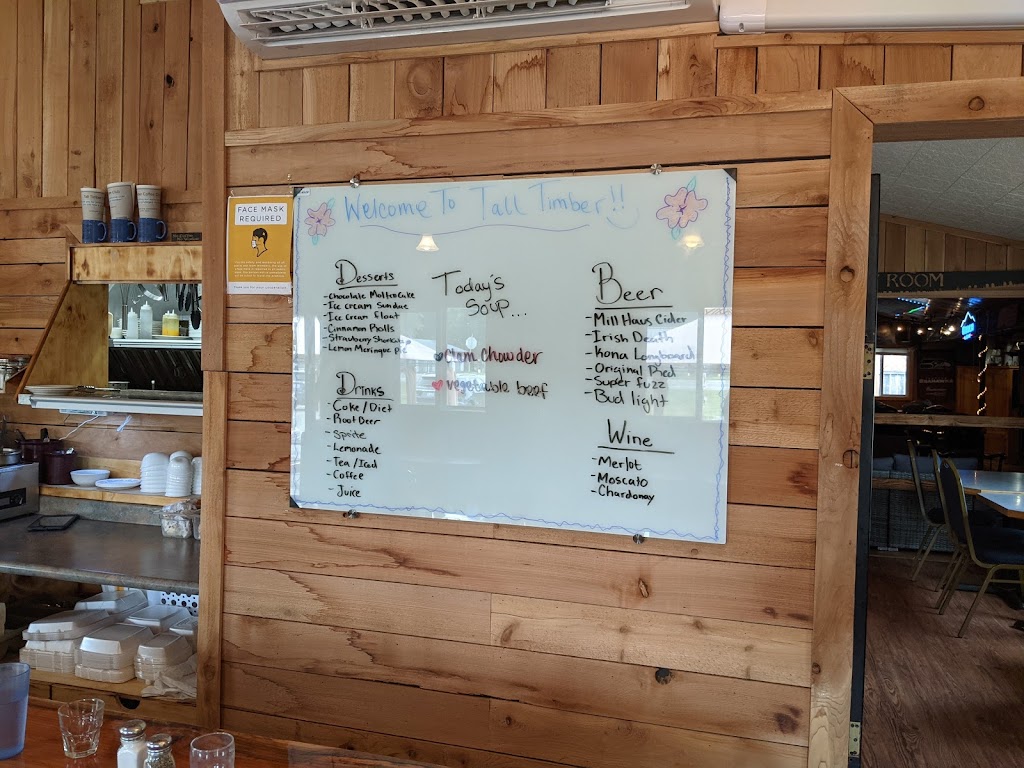 Welcome To Tall Timber!!
FACE MASK
REQUIRED
Desserts
- Chocolate Molten Cake
- Ice cream Sundae
- Ice cream float
- Cinnamon Rolls
- Strawberry Shortcake
- Lemon Meringue pie
Drinks
- Coke/Diet
- Root Beer
- Sprite
- Lemonade
- Tea/Iced
- Coffee
- Juice
Today's
Soup...
Clam Chowder
vegetable beef
Beer
- Mill Haus Cider
- Irish Death
- Kona Longboard
- Original Pred
- Super fuzz
- Bud light
Wine
- Merlot
- Moscato
- Chardonay
ROOM